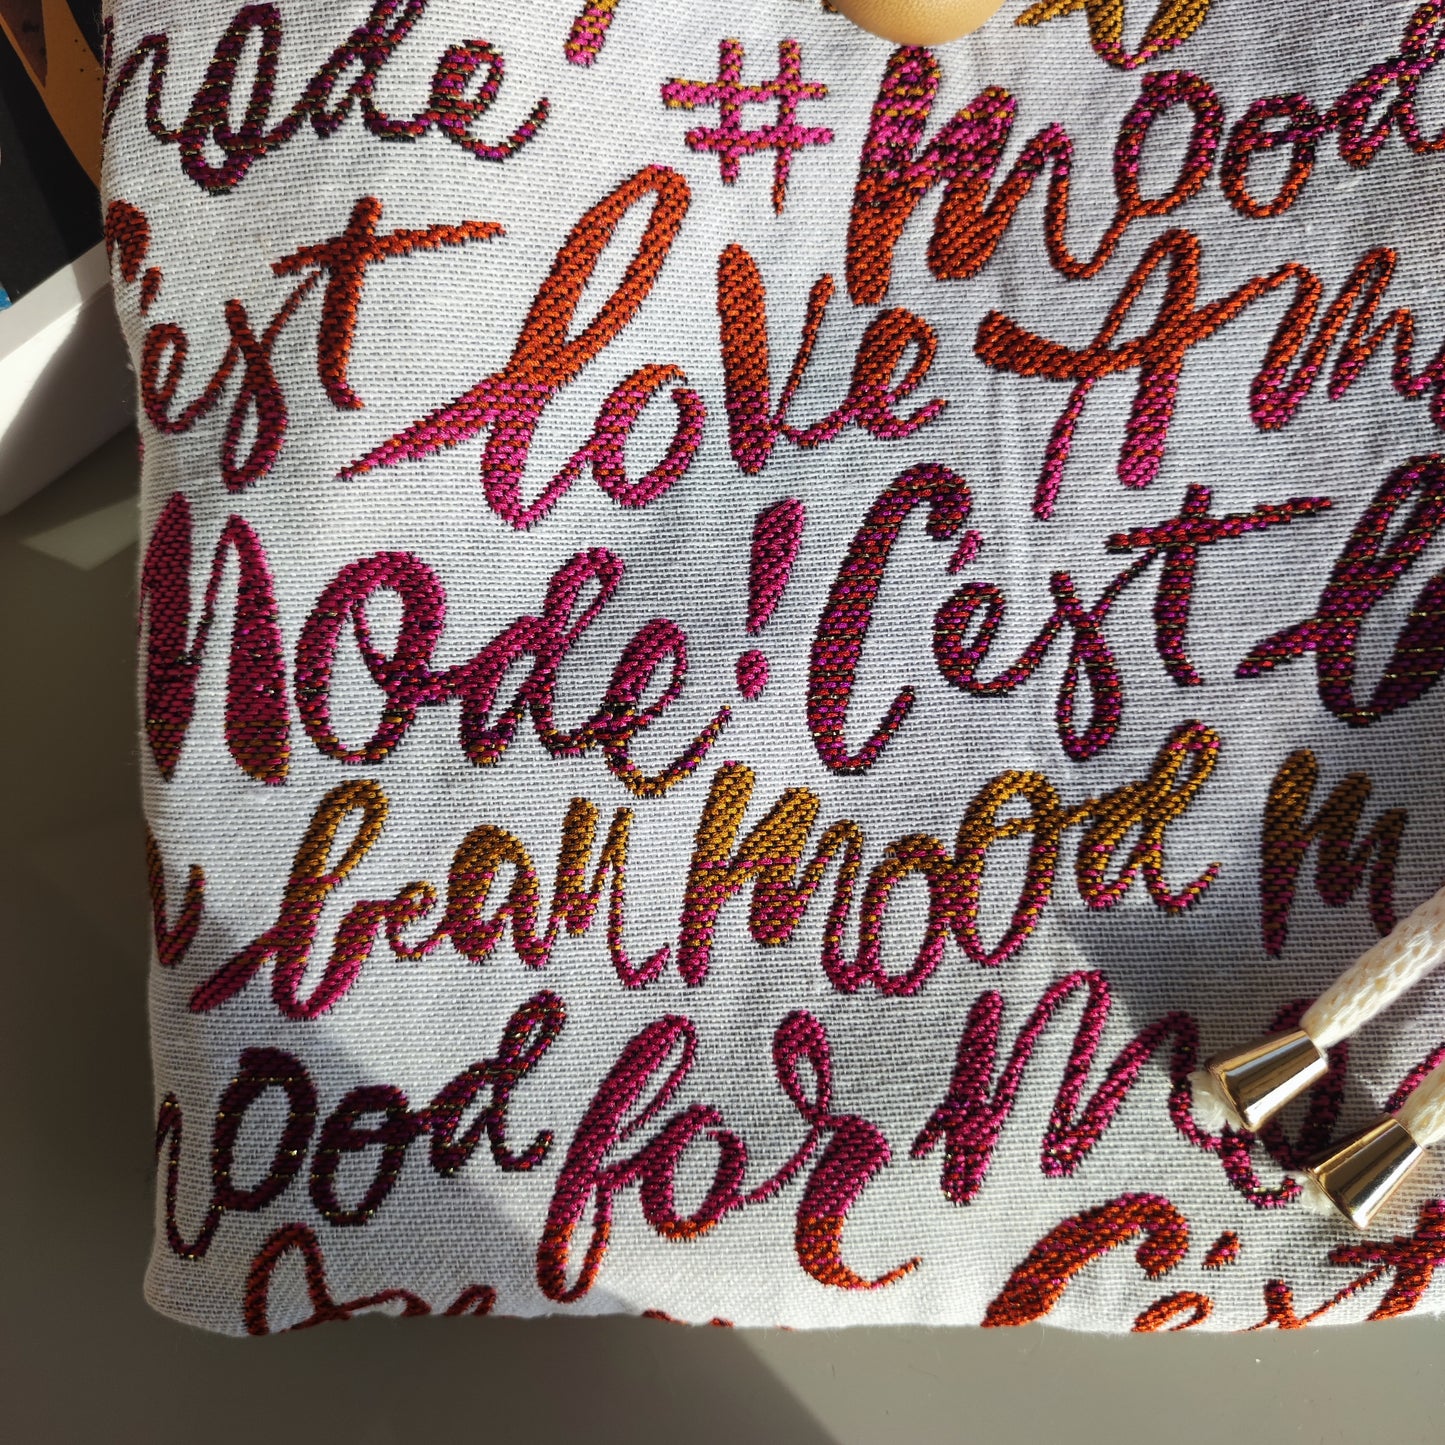 mode #mood
C'est love Am
Mode! C'est l
bean mood m
mood for mo
C'est